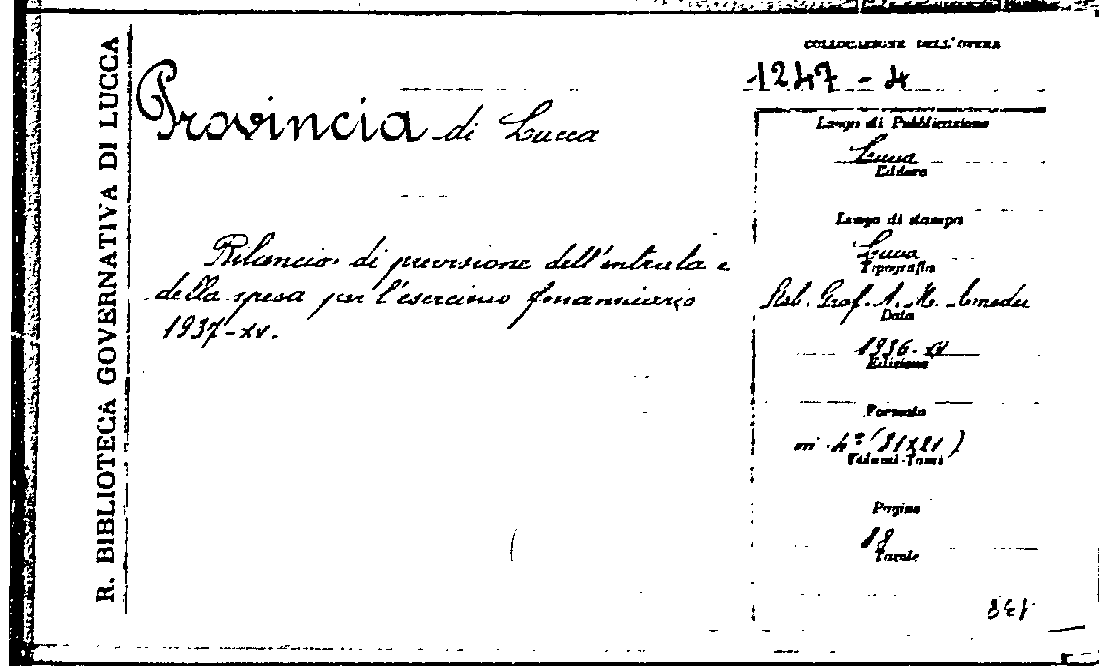 R. BIBLIOTECA GOVERNATIVA DI LUCCA
Provincia di Lucca
Bilancio di previsione dell'entrata e
della spesa per l'esercizio finanziario
1937-XV.
COLLOCAZIONE DELL'OPERA
1247-4
Luogo di Pubblicazione
Lucca
Editore
Luogo di stampa
Lucca
Tipografia
Stab. Graf. A. M. Amedei
Data
1936-XV
Edizione
Formato
in 4º (31x21)
Volumi-Tomi
Pagine
18
Tavole